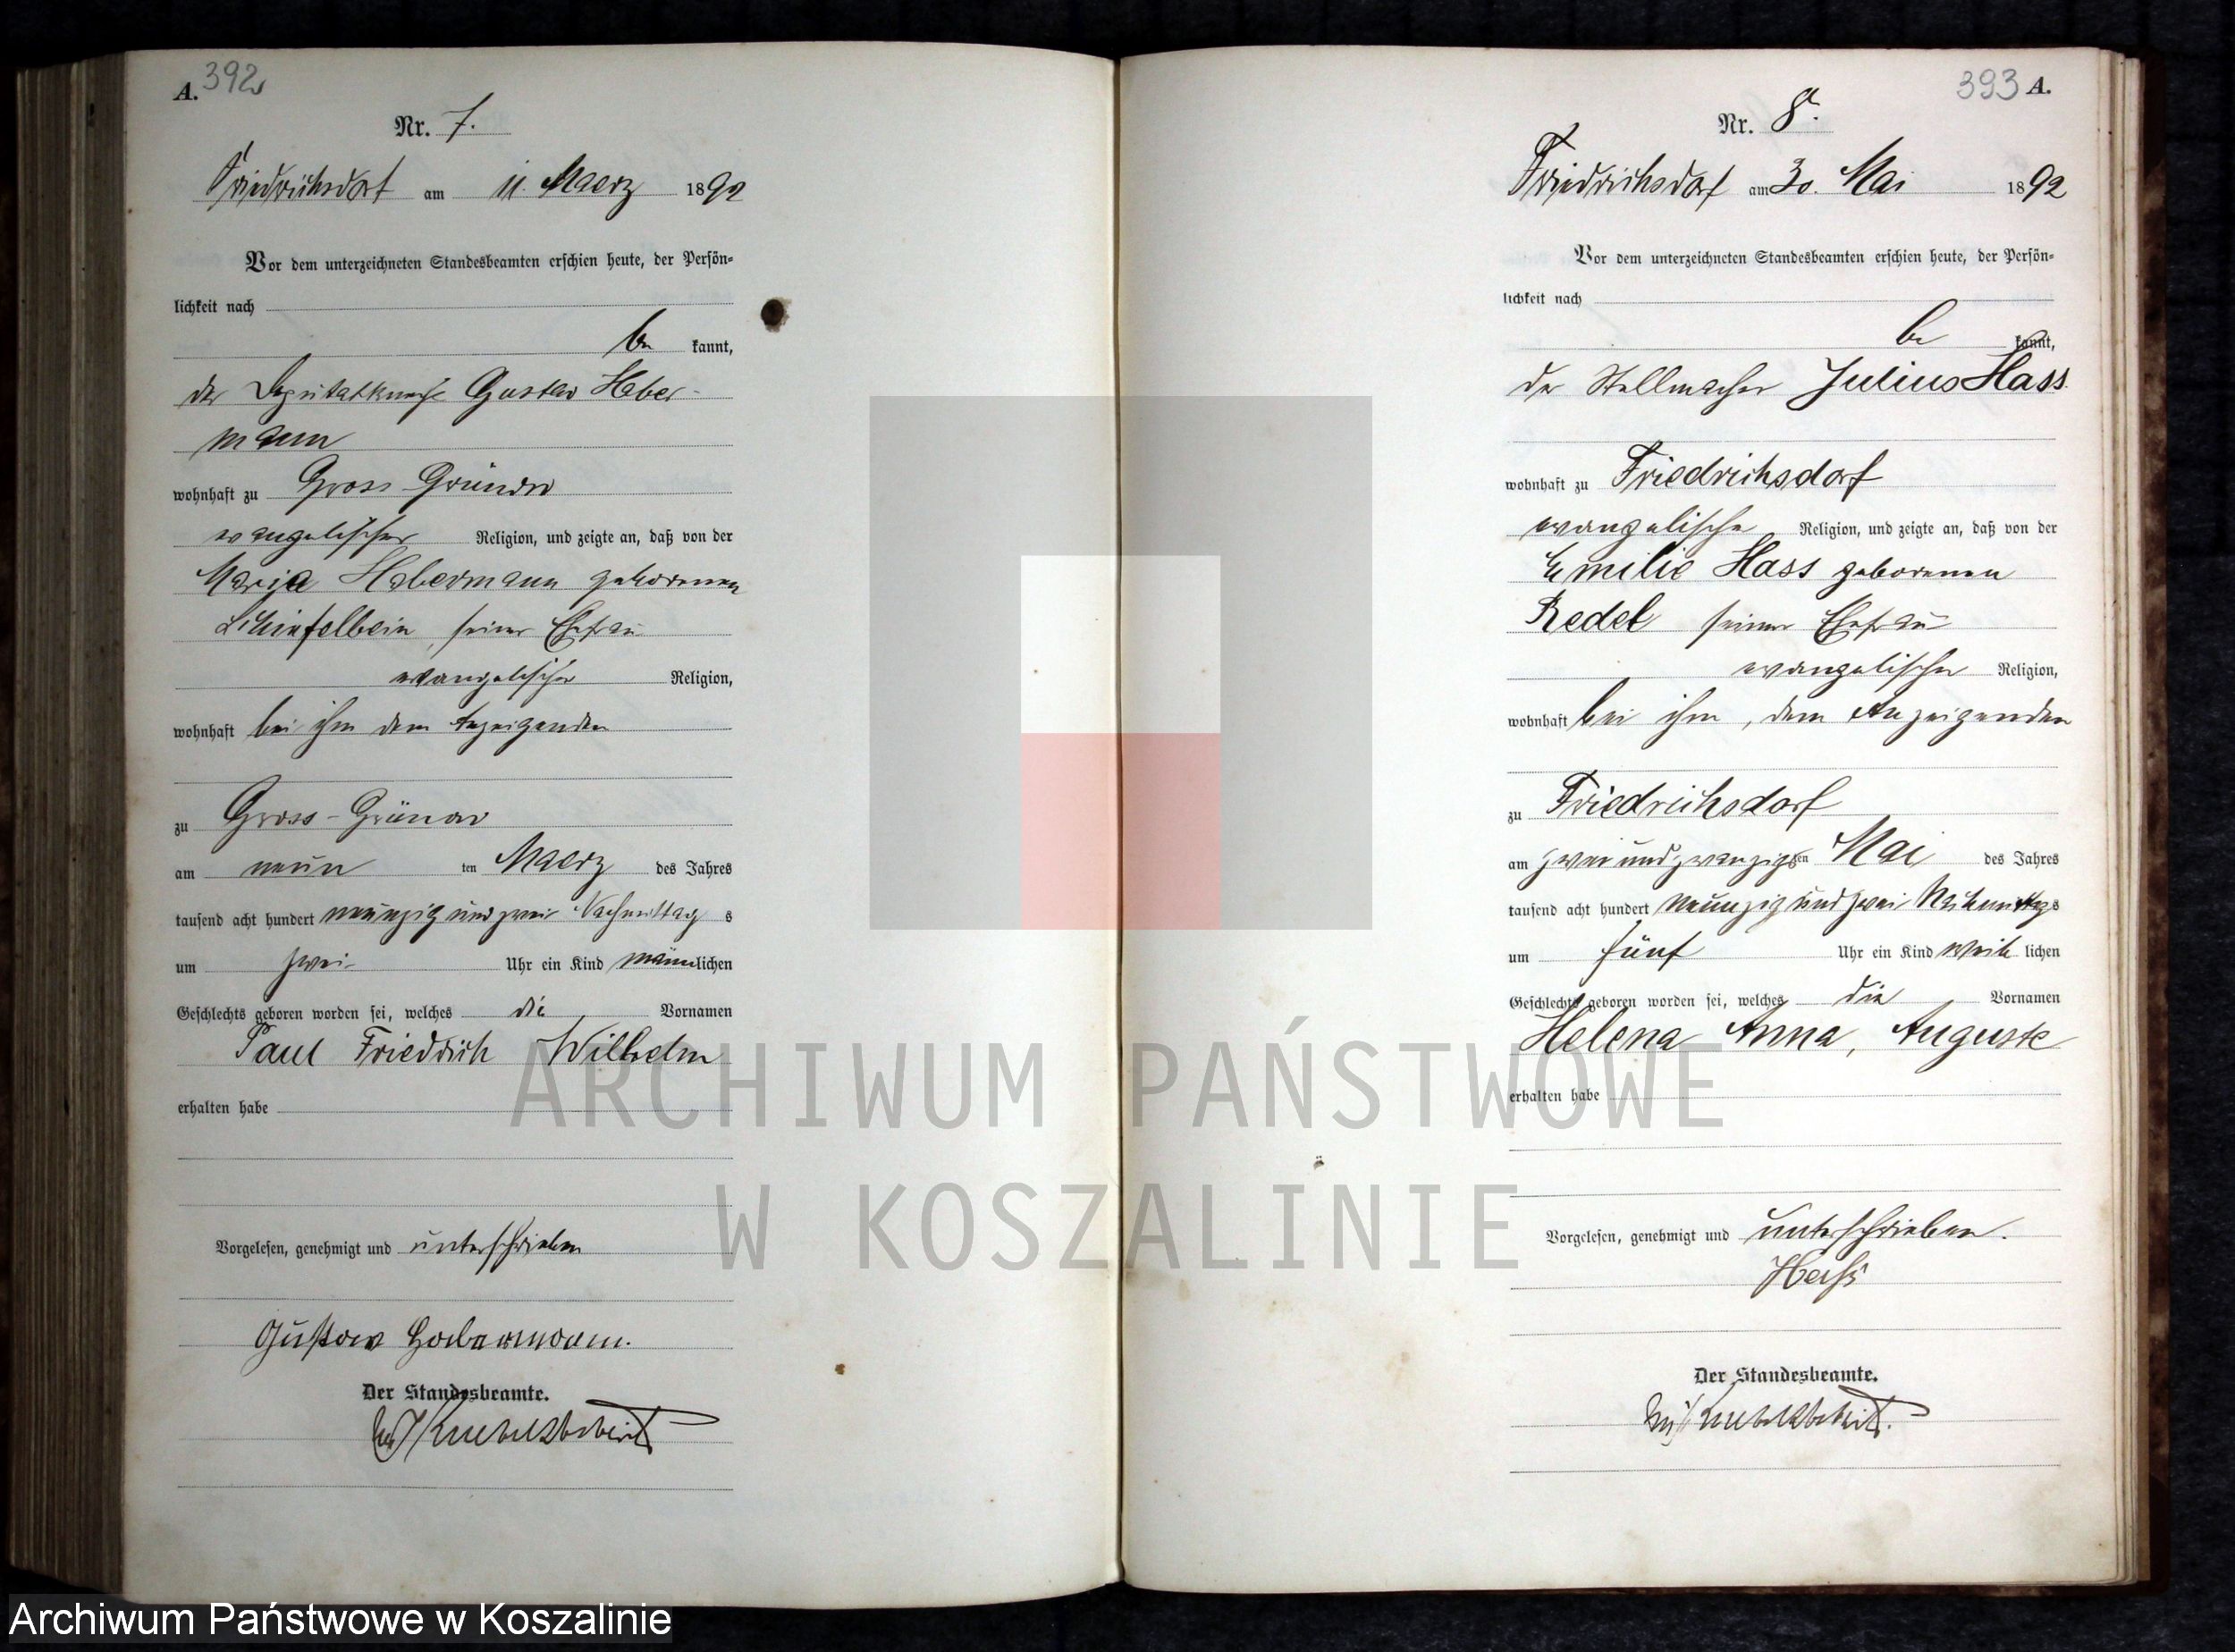 A. 392
Nr. 7.
Friedrichsdorf am 11. Maerz 1892
Vor dem unterzeichneten Standesbeamten erschien heute, der Persön-
lichkeit nach
be kannt,
der Deputatknecht Gustav Haber-
mann
wohnhaft zu Gross Grünow
evangelischer Religion, und zeigte an, daß von der
Maria Habermann geborenen
Schiefelbein, seiner Ehefrau
evangelischer Religion,
wohnhaft bei ihm dem Anzeigenden
zu Gross-Grünow
am neun ten Maerz des Jahres
tausend acht hundert neunzig und zwei Nachmittag s
um zwei Uhr ein Kind männlichen
Geschlechts geboren worden sei, welches die Vornamen
Paul Friedrich Wilhelm
erhalten habe
Vorgelesen, genehmigt und unterschrieben
Gustav Habermann.
Der Standesbeamte.
393 A.
Nr. 8.
Friedrichsdorf am 30. Mai 1892
Vor dem unterzeichneten Standesbeamten erschien heute, der Persön-
lichkeit nach
be kannt,
der Stellmacher Julius Hass
wohnhaft zu Friedrichsdorf
evangelischer Religion, und zeigte an, daß von der
Emilie Hass geborenen
Redel seiner Ehefrau
evangelischer Religion,
wohnhaft bei ihm, dem Anzeigenden
zu Friedrichsdorf
am zwei und zwanzigsten Mai des Jahres
tausend acht hundert neunzig und zwei Nachmittags
um fünf Uhr ein Kind weib lichen
Geschlechts geboren worden sei, welches die Vornamen
Helena Anna, Auguste
erhalten habe
Vorgelesen, genehmigt und unterschrieben.
Hass
Der Standesbeamte.
ARCHIWUM PAŃSTWOWE
W KOSZALINIE
Archiwum Państwowe w Koszalinie